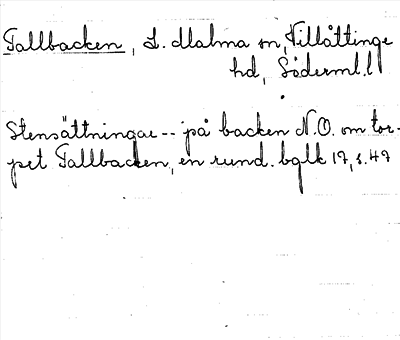 Tallbacken, L. Malma sn, Villåttinge
hd, Söderml.l
Stensättningar -- på backen N.O. om tor-
pet Tallbacken, en rund. bglk 17, s. 47